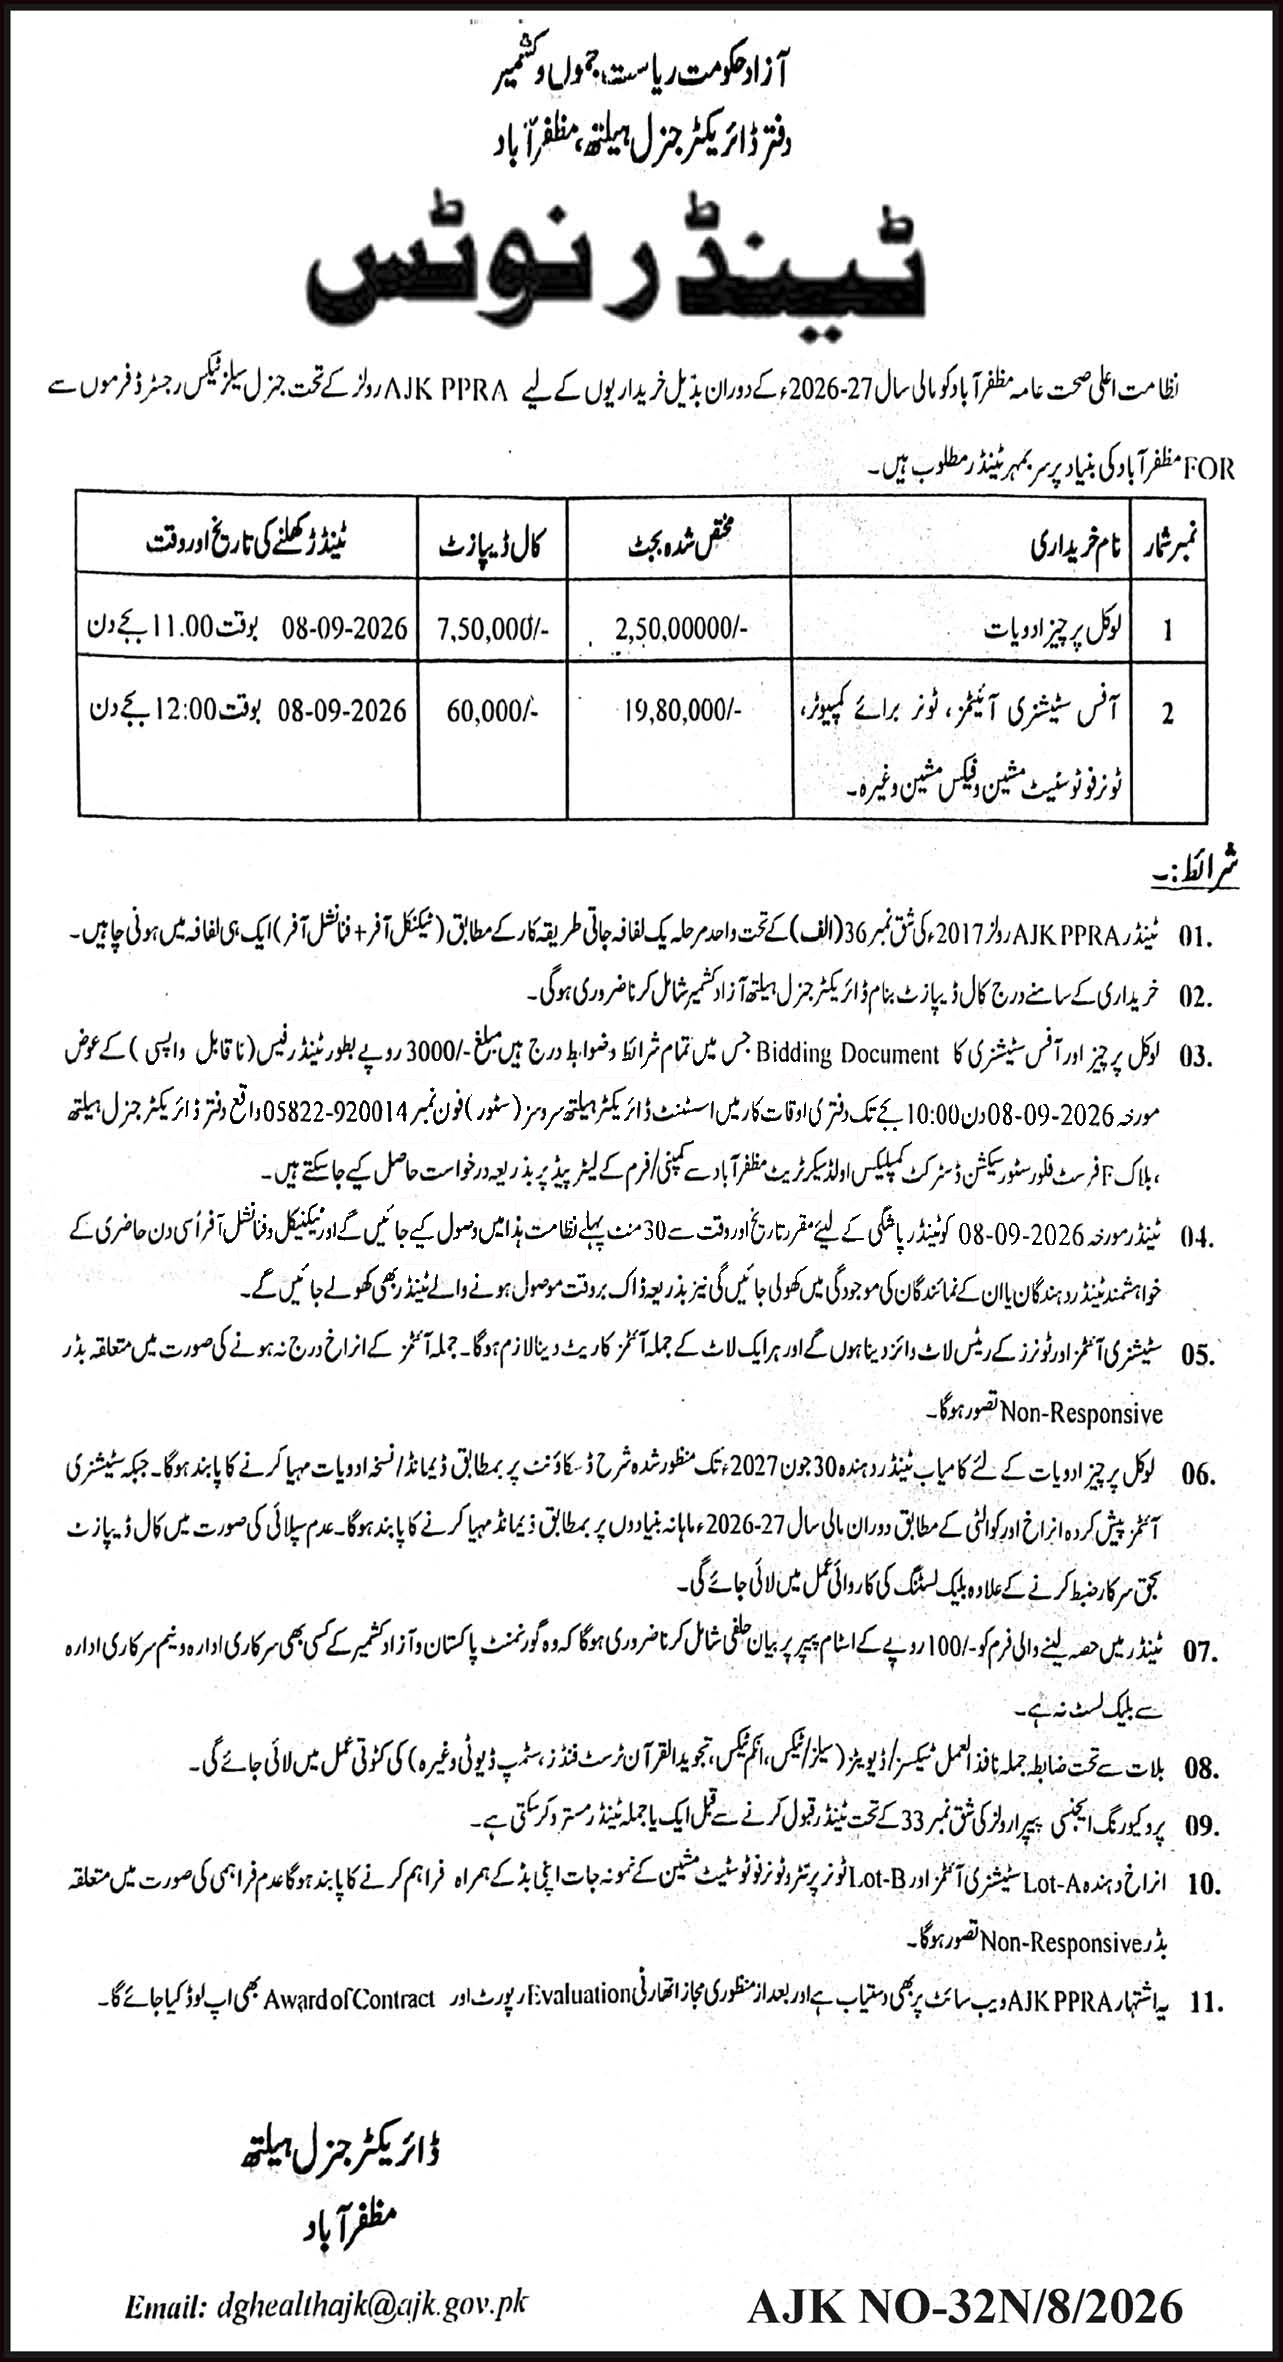 آزاد حکومت ریاست جموں و کشمیر
دفتر ڈائریکٹر جنرل ہیلتھ، مظفرآباد
ٹینڈر نوٹس
نظامت اعلیٰ صحت عامہ مظفرآباد کو مالی سال 27-2026ء کے دوران بذیل خریداریوں کے لیے AJK PPRA رولز کے تحت جنرل سیلز ٹیکس رجسٹرڈ فرموں سے
FOR مظفرآباد کی بنیاد پر سربمہر ٹینڈر مطلوب ہیں۔
نمبر شمار | نام خریداری | مختص شدہ بجٹ | کال ڈیپازٹ | ٹینڈر کھلنے کی تاریخ اور وقت
1 | لوکل پرچیز ادویات | 2,50,00000/- | 7,50,000/- | 08-09-2026 بوقت 11.00 بجے دن
2 | آفس سٹیشنری آئیٹمز، ٹونر برائے کمپیوٹر، | 19,80,000/- | 60,000/- | 08-09-2026 بوقت 12:00 بجے دن
ٹونر فوٹو سٹیٹ مشین و فیکس مشین وغیرہ۔
شرائط:۔
01. ٹینڈر AJK PPRA رولز 2017ء کی شق نمبر 36 (الف) کے تحت واحد مرحلہ یک لفافہ جاتی طریقہ کار کے مطابق (ٹیکنکل آفر + فنانشل آفر) ایک ہی لفافہ میں ہونی چاہیں۔
02. خریداری کے سامنے درج کال ڈیپازٹ بنام ڈائریکٹر جنرل ہیلتھ آزاد کشمیر شامل کرنا ضروری ہوگی۔
03. لوکل پرچیز اور آفس سٹیشنری کا Bidding Document جس میں تمام شرائط و ضوابط درج ہیں مبلغ -/3000 روپے بطور ٹینڈر فیس (ناقابل واپسی) کے عوض
مورخہ 08-09-2026 دن 10:00 بجے تک دفتری اوقات کار میں اسسٹنٹ ڈائریکٹر ہیلتھ سروسز (سٹور) فون نمبر 05822-920014 واقع دفتر ڈائریکٹر جنرل ہیلتھ
، بلاک F فرسٹ فلور سٹور سیکشن ڈسٹرکٹ کمپلیکس اولڈ سیکرٹریٹ مظفرآباد سے کمپنی/فرم کے لیٹر پیڈ پر بذریعہ درخواست حاصل کیے جا سکتے ہیں۔
04. ٹینڈر مورخہ 08-09-2026 کو ٹینڈر پاشگی کے لیئے مقررتاریخ اور وقت سے 30 منٹ پہلے نظامت ہذا میں وصول کیے جائیں گے اور ٹیکنیکل و فنانشل آفر اُسی دن حاضری کے
خواہشمند ٹینڈر دہندگان یا ان کے نمائندگان کی موجودگی میں کھولی جائیں گی نیز بذریعہ ڈاک بروقت موصول ہونے والے ٹینڈر بھی کھولے جائیں گے۔
05. سٹیشنری آئٹمز اور ٹونرز کے ریٹس لاٹ وائز دینا ہوں گے اور ہر ایک لاٹ کے جملہ آئٹمز کا ریٹ دینا لازم ہوگا۔ جملہ آئٹمز کے انراخ درج نہ ہونے کی صورت میں متعلقہ بڈر
Non-Responsive تصور ہوگا۔
06. لوکل پرچیز ادویات کے لئے کامیاب ٹینڈر دہندہ 30 جون 2027ء تک منظور شدہ شرح ڈسکاؤنٹ پر بمطابق ڈیمانڈ/نسخہ ادویات مہیا کرنے کا پابند ہوگا۔ جبکہ سٹیشنری
آئٹمز پیش کردہ انراخ اور کوالٹی کے مطابق دوران مالی سال 27-2026ء ماہانہ بنیادوں پر بمطابق ڈیمانڈ مہیا کرنے کا پابند ہوگا۔ عدم سپلائی کی صورت میں کال ڈیپازٹ
بحق سرکار ضبط کرنے کے علاوہ بلیک لسٹنگ کی کاروائی عمل میں لائی جائے گی۔
07. ٹینڈر میں حصہ لینے والی فرم کو -/100 روپے کے اسٹام پیپر پر بیان حلفی شامل کرنا ضروری ہوگا کہ وہ گورنمنٹ پاکستان و آزاد کشمیر کے کسی بھی سرکاری ادارہ و نیم سرکاری ادارہ
سے بلیک لسٹ نہ ہے۔
08. بلات سے تحت ضابطہ جملہ نافذ العمل ٹیکسز/ڈیوٹیز (سیلز/ٹیکس، انکم ٹیکس، تجوید القرآن ٹرسٹ فنڈز، سٹمپ ڈیوٹی وغیرہ) کی کٹوتی عمل میں لائی جائے گی۔
09. پروکیورنگ ایجنسی پیپرا رولز کی شق نمبر 33 کے تحت ٹینڈر قبول کرنے سے قبل ایک یا جملہ ٹینڈر مسترد کر سکتی ہے۔
10. انراخ دہندہ Lot-A سٹیشنری آئٹمز اور Lot-B ٹونر پرنٹر و ٹونر فوٹوسٹیٹ مشین کے نمونہ جات اپنی بڈ کے ہمراہ فراہم کرنے کا پابند ہوگا عدم فراہمی کی صورت میں متعلقہ
بڈر Non-Responsive تصور ہوگا۔
11. یہ اشتہار AJK PPRA ویب سائٹ پر بھی دستیاب ہے اور بعد از منظوری مجاز اتھارٹی Evaluation رپورٹ اور Award of Contract بھی اپ لوڈ کیا جائے گا۔
ڈائریکٹر جنرل ہیلتھ
مظفرآباد
Email: dghealthajk@ajk.gov.pk
AJK NO-32N/8/2026